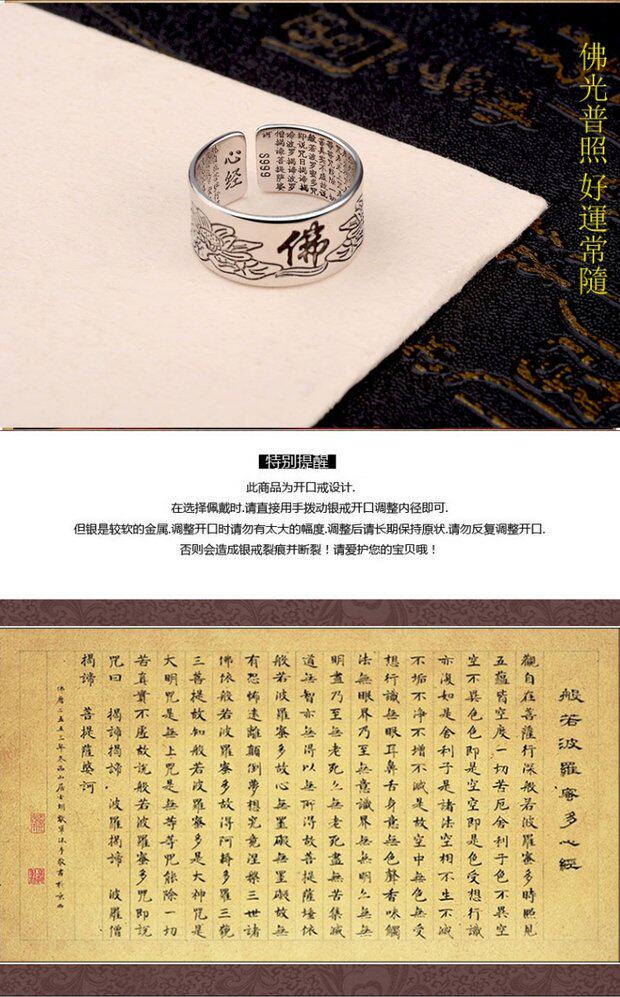 佛光普照 好運常隨
心经
S999
佛
特别提醒
此商品为开口戒设计.
在选择佩戴时.请直接用手拨动银戒开口调整内径即可.
但银是较软的金属.调整开口时请勿有太大的幅度.调整后请长期保持原状.请勿反复调整开口.
否则会造成银戒裂痕并断裂！请爱护您的宝贝哦！
般若波羅蜜多心經
觀自在菩薩行深般若波羅蜜多時照見
五蘊皆空度一切苦厄舍利子色不異空
空不異色色即是空空即是色受想行識
亦復如是舍利子是諸法空相不生不滅
不垢不淨不增不減是故空中無色無受
想行識無眼耳鼻舌身意無色聲香味觸
法無眼界乃至無意識界無無明亦無無
明盡乃至無老死亦無老死盡無苦集滅
道無智亦無得以無所得故菩提薩埵依
般若波羅蜜多故心無罣礙無罣礙故無
有恐怖遠離顛倒夢想究竟涅槃三世諸
佛依般若波羅蜜多故得阿耨多羅三藐
三菩提故知般若波羅蜜多是大神咒是
大明咒是無上咒是無等等咒能除一切
苦真實不虛故說般若波羅蜜多咒即說
咒曰 揭諦揭諦 波羅揭諦 波羅僧
揭諦 菩提薩婆訶